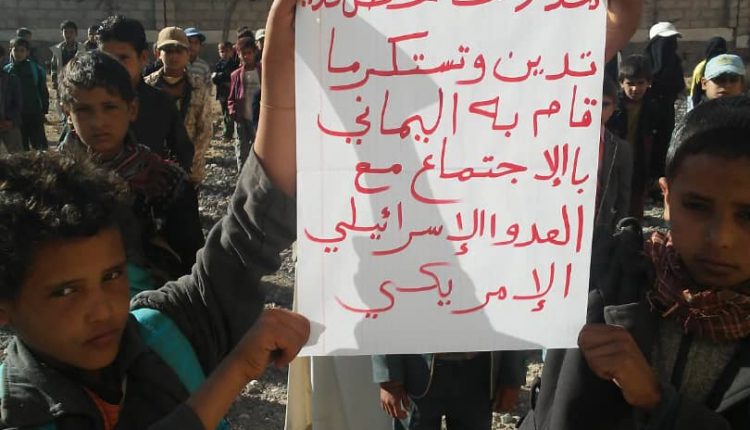 تدين وتستكرما
قام به اليماني
باالإجتماع مع
العدواالإسرائيلي
الإمريكي